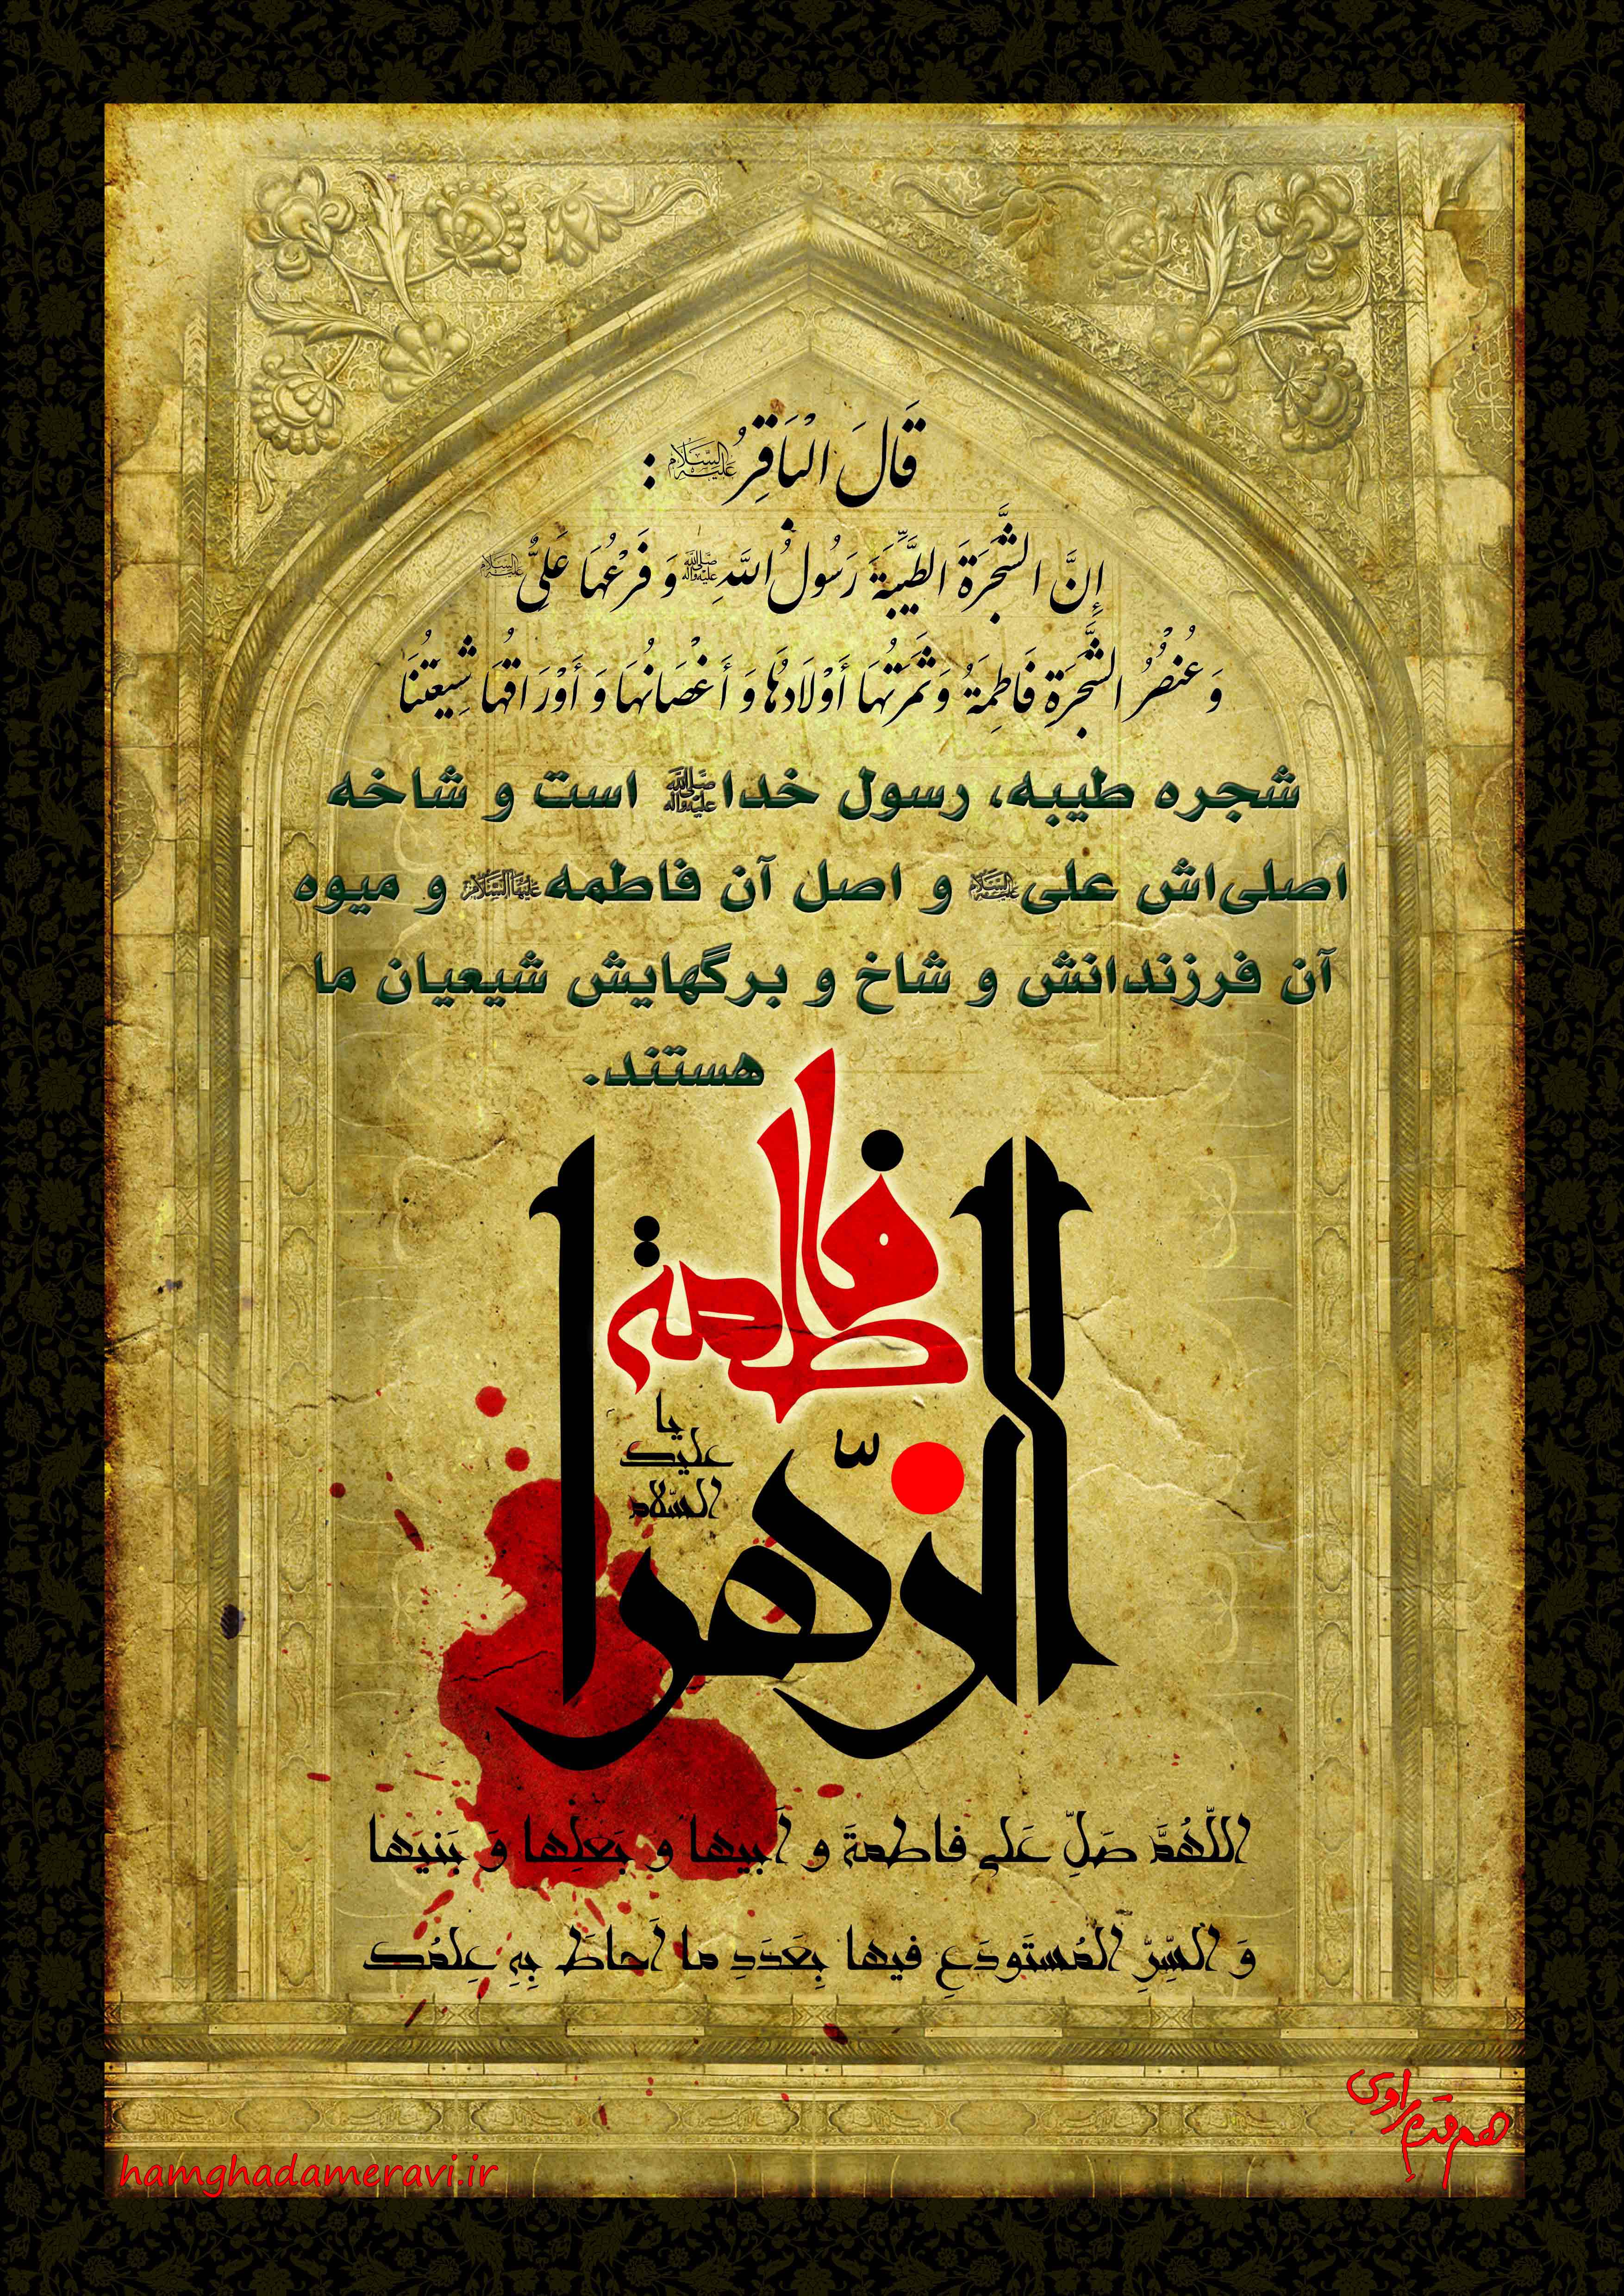 قَالَ الْبَاقِرُ عَلَيْهِ السَّلَام :
إِنَّ الشَّجَرَةَ الطَّيِّبَةَ رَسُولُ اللَّهِ ﷺ وَ فَرْعُهَا عَلِيٌّ عَلَيْهِ السَّلَام
وَ عُنْصُرُ الشَّجَرَةِ فَاطِمَةُ وَ ثَمَرَتُهَا أَوْلَادُهَا وَ أَغْصَانُهَا وَ أَوْرَاقُهَا شِيعَتُنَا
شجره طیبه، رسول خدا ﷺ است و شاخه
اصلی‌اش علی علیه السلام و اصل آن فاطمه علیها السلام و میوه
آن فرزندانش و شاخ و برگهایش شیعیان ما
هستند.
فاطمة
الزّهرا
السّلام
علیک
یا
اللّهُمَّ صَلِّ عَلی فاطمةَ و اَبیها وَ بَعْلِها وَ بَنیها
وَ السِّرِّ المُستَودَعِ فیها بِعَدَدِ ما اَحاطَ بِهِ عِلمُک
هم قدم راوی
hamghadameravi.ir